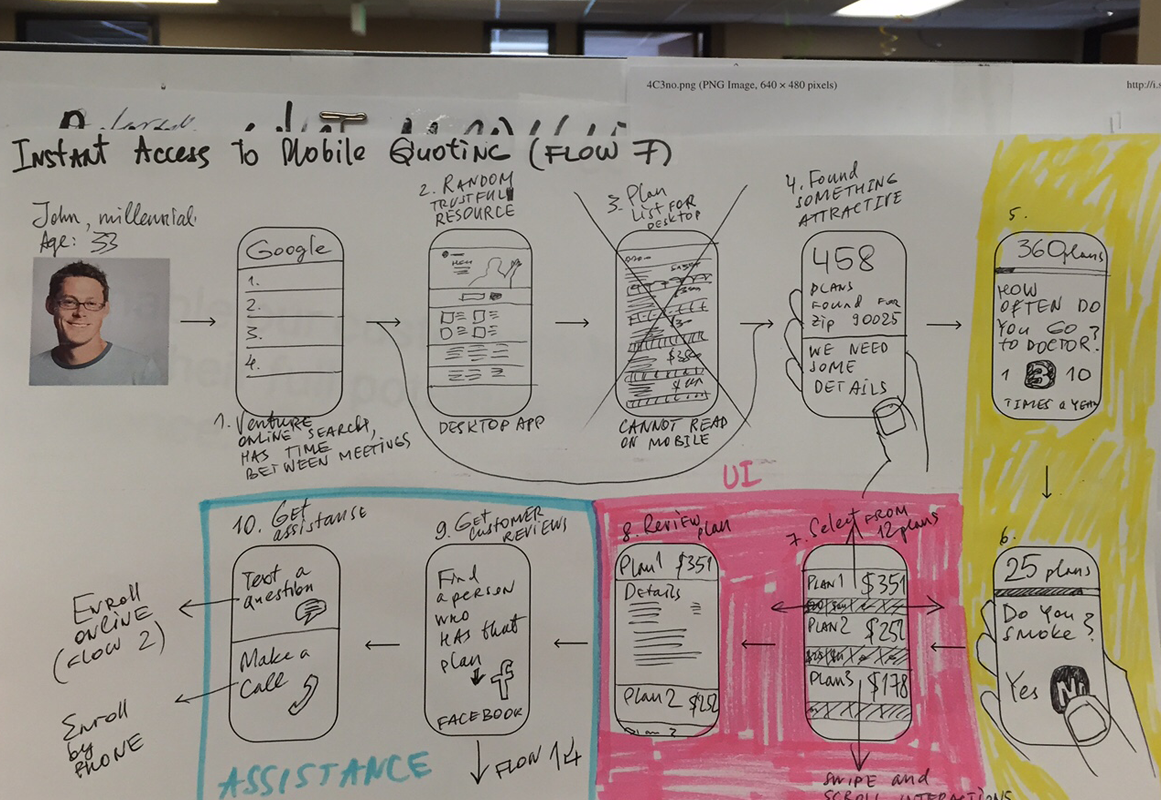 4C3no.png (PNG Image, 640 × 480 pixels)
http://i.s
INSTANT ACCESS TO MOBILE QUOTING (FLOW 7)
John, millennial
Age: 33
Google
1.
2.
3.
4.
1. VENTURE
ONLINE SEARCH,
HAS TIME
BETWEEN MEETINGS
2. RANDOM
TRUSTFULL
RESOURCE
DESKTOP APP
3. Plan
LIST FOR
DESKTOP
CANNOT READ
ON MOBILE
4. Found
SOMETHING
ATTRACTIVE
458
PLANS
FOUND FOR
Zip 90025
WE NEED
SOME
DETAILS
5.
360 plans
HOW
OFTEN DO
YOU GO
to DOCTOR?
1 3 10
TIMES a YEAR
6.
25 plans
Do you
smoke?
Yes No
UI
7. Select FROM
12 plans
PLAN 1 $351
PLAN 2 $252
Plan 3 $178
SWIPE and
SCROLL INTERACTIONS
8. Review plan
Plan 1 $351
Details
Plan 2 $252
9. Get
CUSTOMER
REVIEWS
Find
a person
who
HAS that
plan
FACEBOOK
FLOW 14
10. GET
assistanse
Text a
question
Make a
call
ASSISTANCE
ENROLL
ONLINE
(FLOW 2)
Enroll
by
PHONE